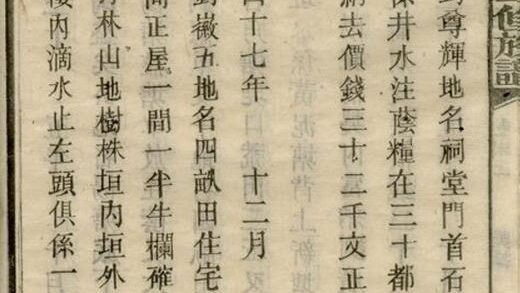 修族譜
尊輝地名祠堂門首石
井水注蔭糧在三十都
納去價錢三十二千文正
四十七年　十二月
徽五地名四畝田住宅
間正屋一間一半牛欄碓
林山地樹株垣內垣外
內滴水止左頭俱係一